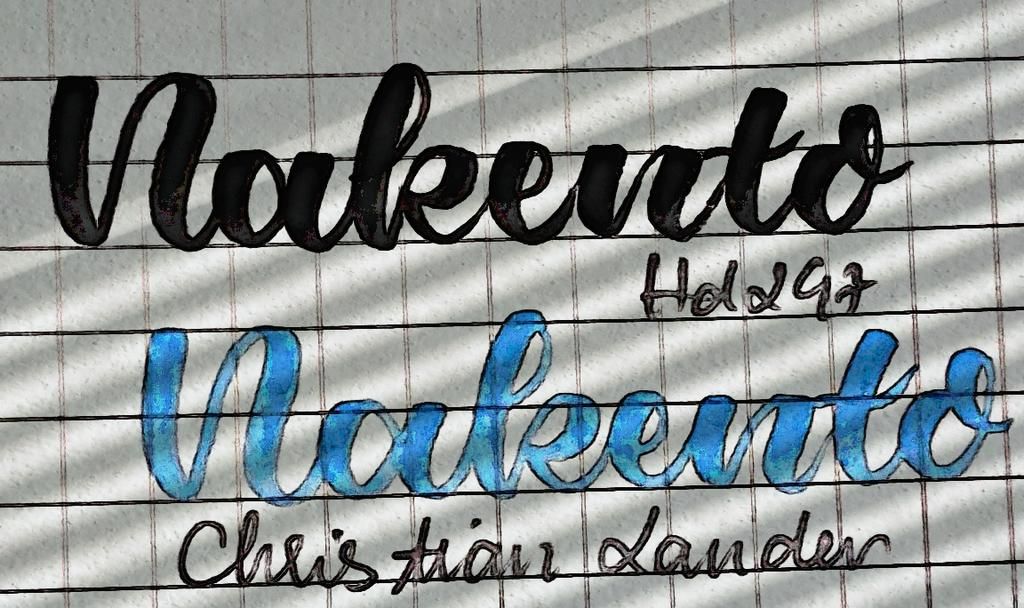 Nakento
Hd297
Nakento
Christian Lander